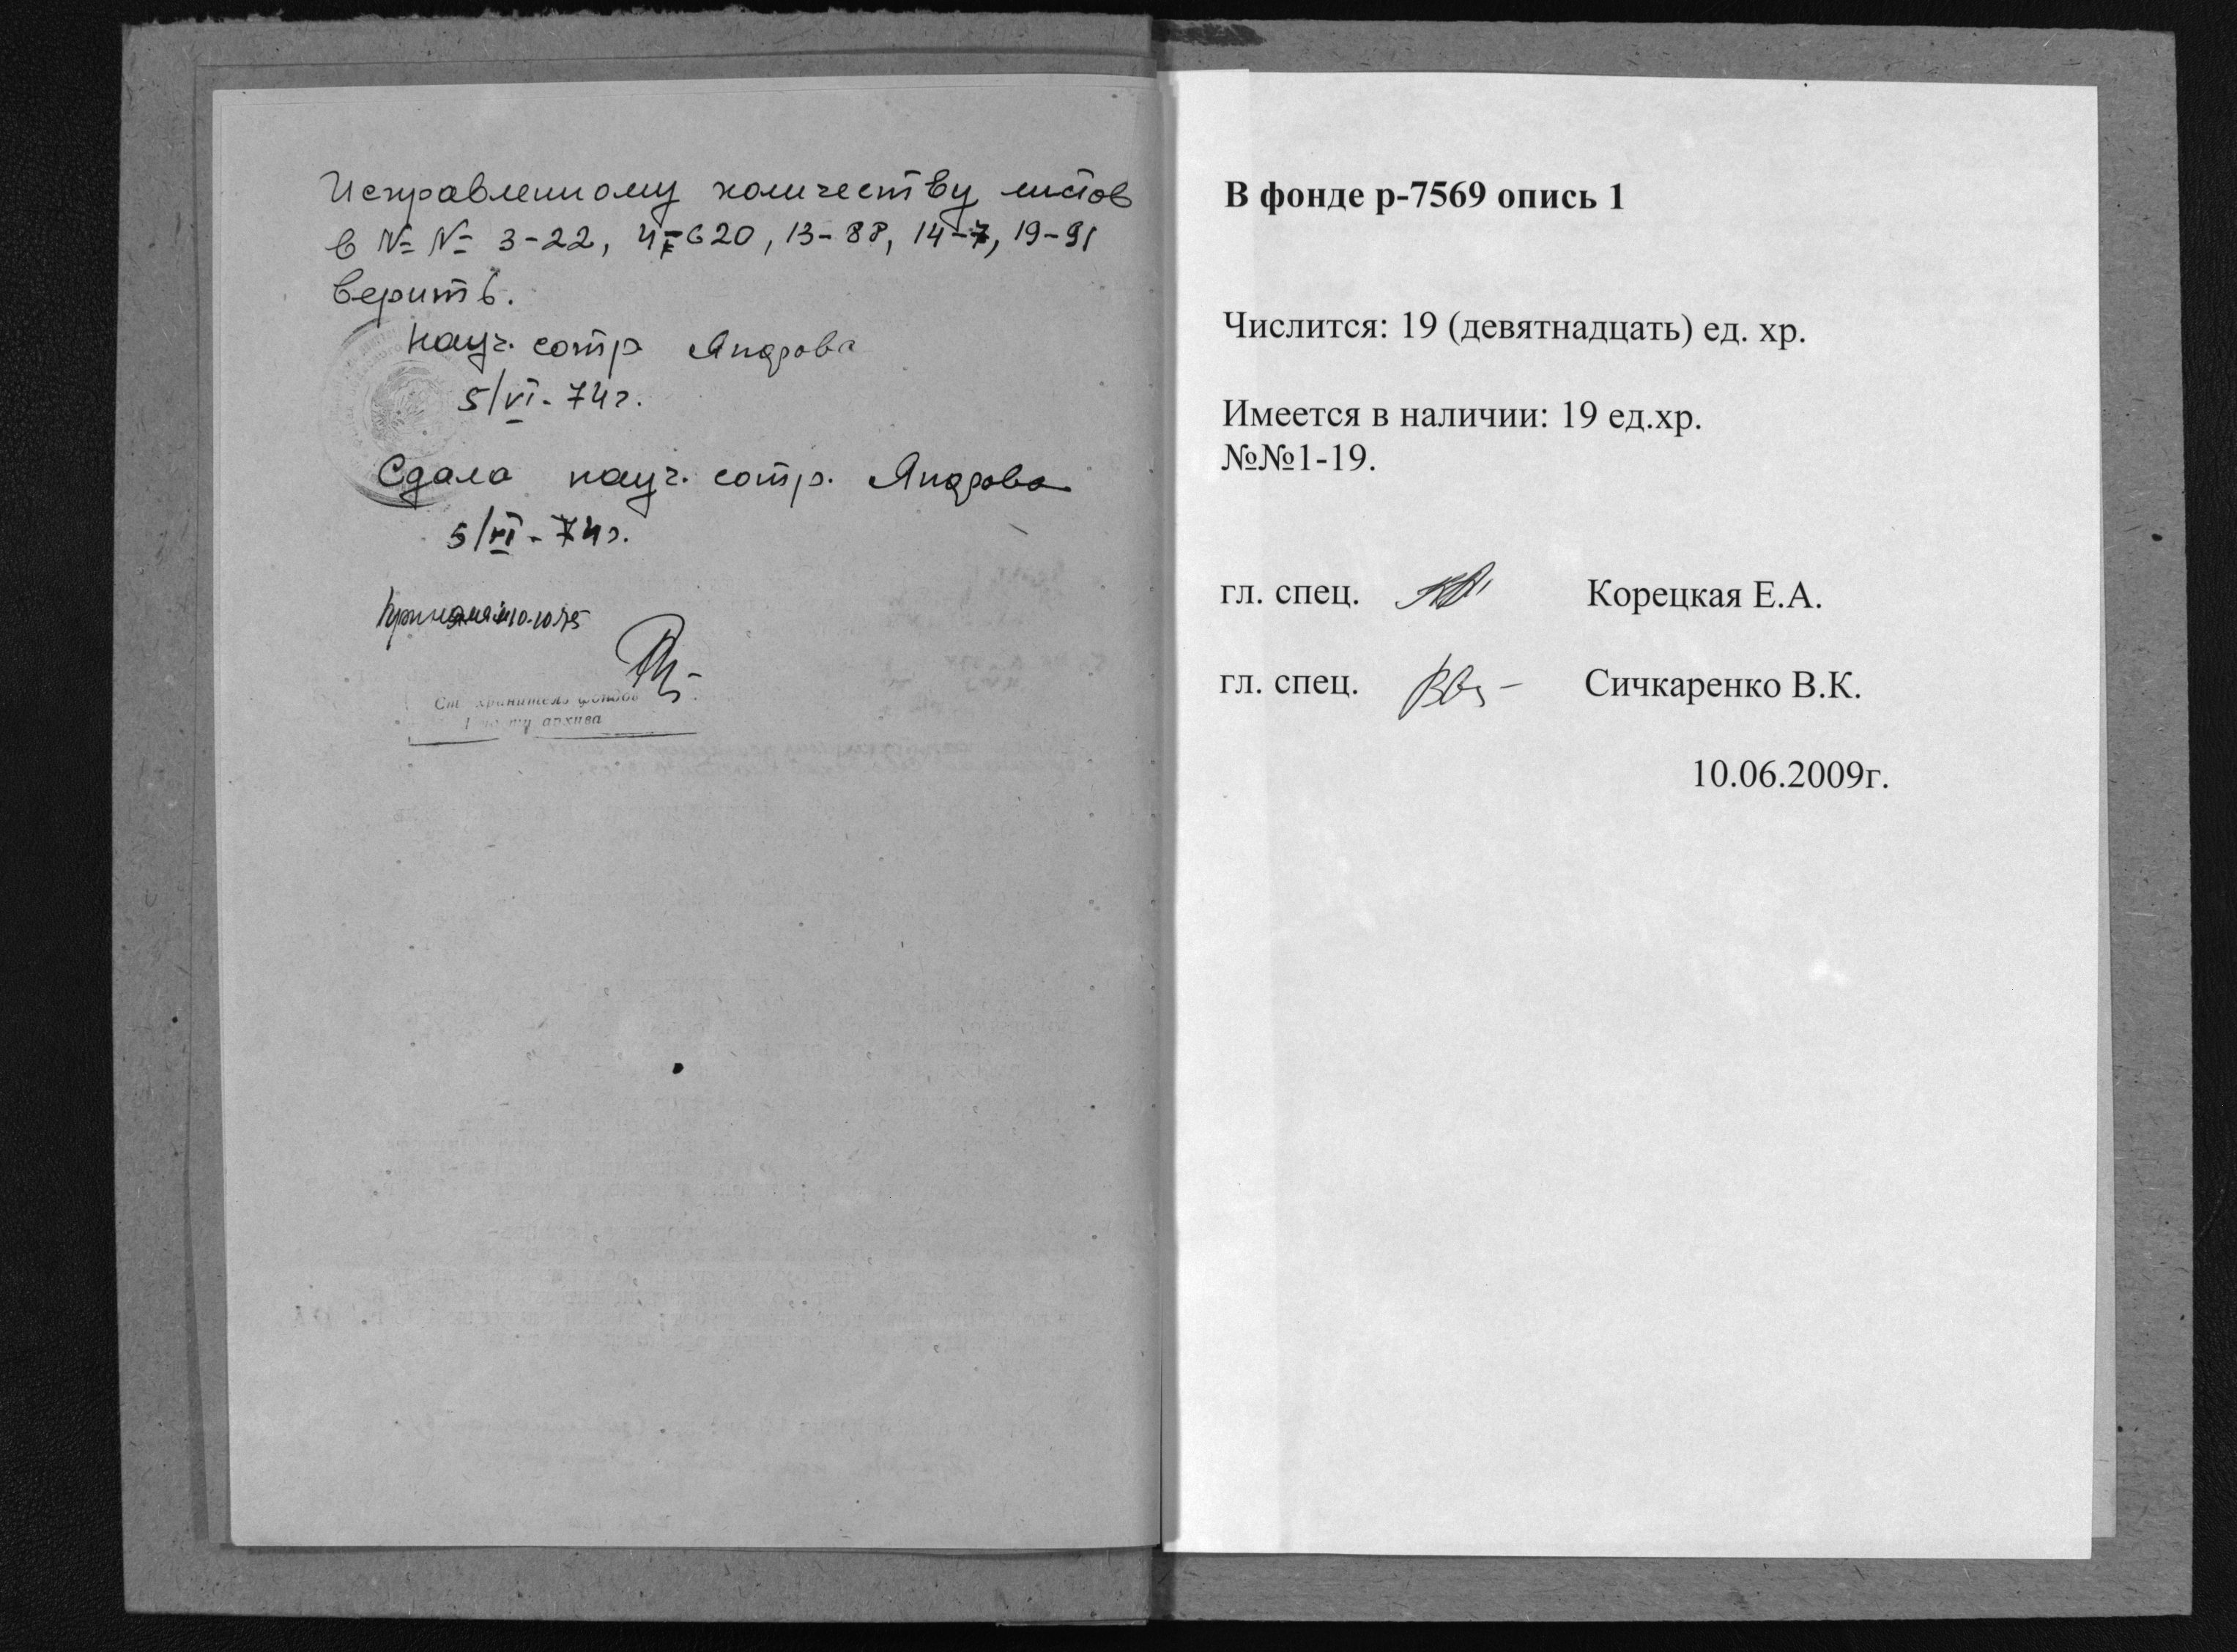 Исправленному количеству листов
в №№ 3-22, 620, 13-88, 14-7, 19-91
верить.
Науч. сотр
5/VI-74г.
Сдала науч. сотр.
5/VI-74г.
Ст хранитель фондов
архива
В фонде р-7569 опись 1
Числится: 19 (девятнадцать) ед. хр.
Имеется в наличии: 19 ед.хр.
№№1-19.
гл. спец. Корецкая Е.А.
гл. спец. Сичкаренко В.К.
10.06.2009г.